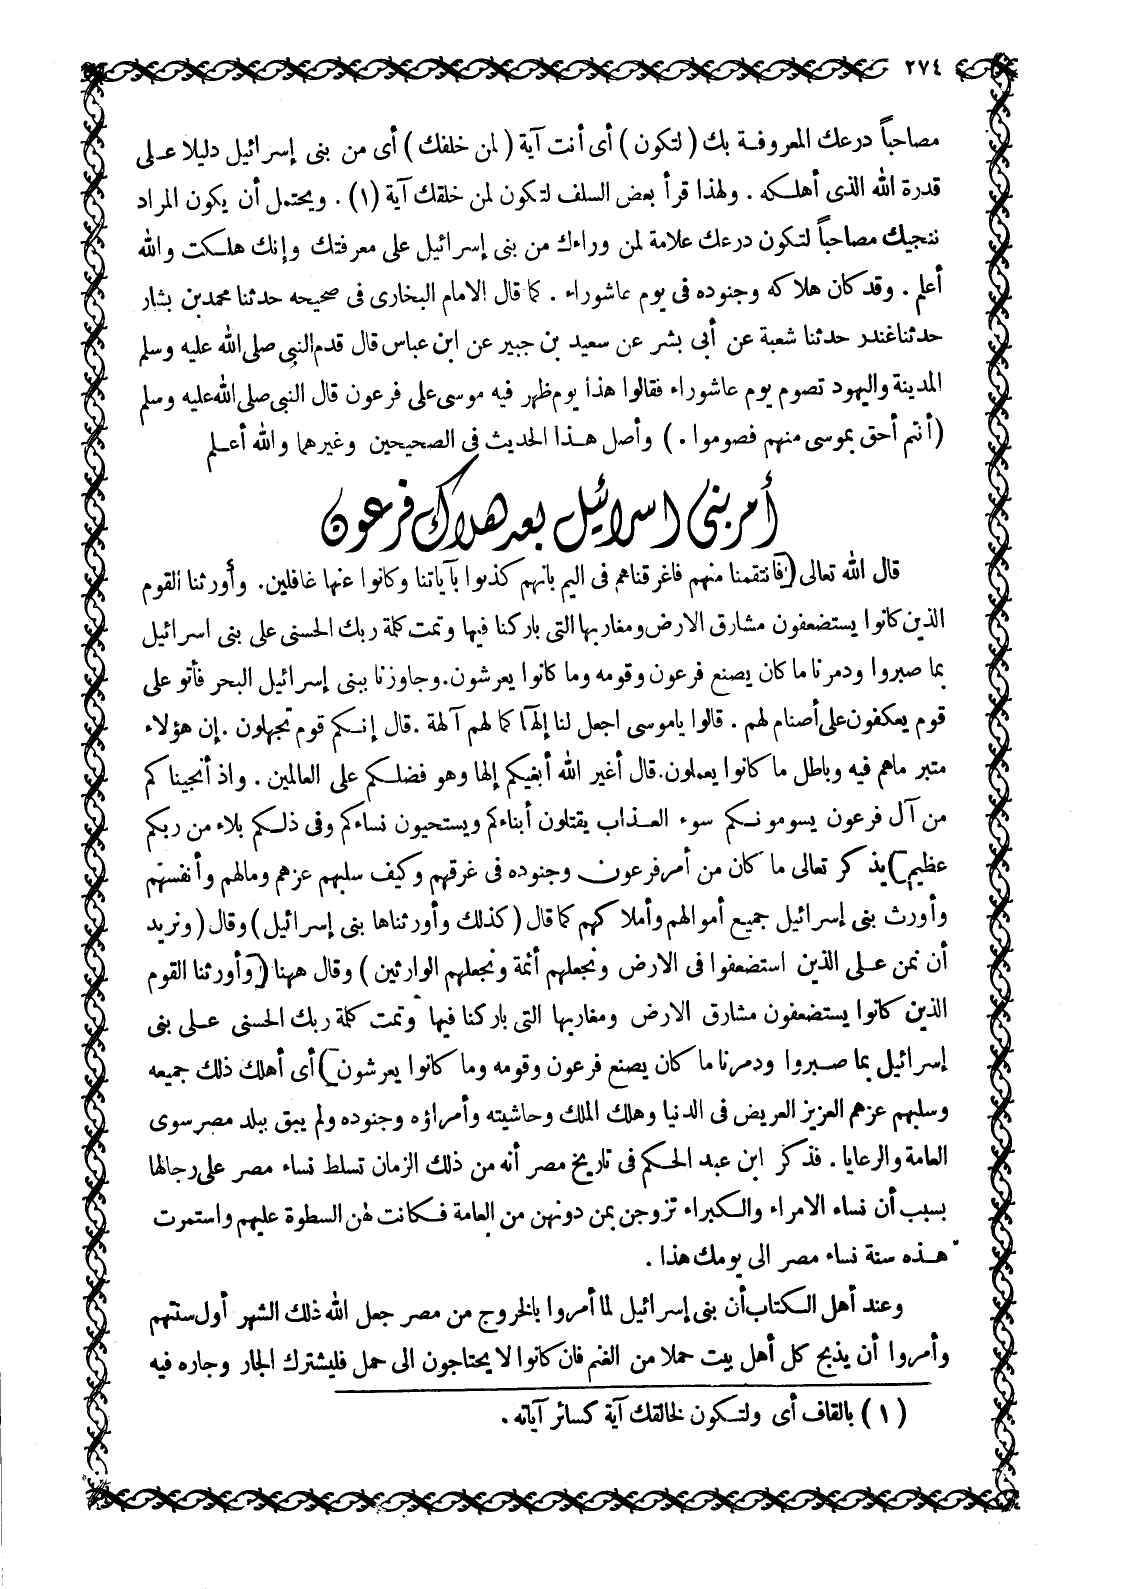 ٢٧٤
مصاحباً درعك المعروفة بك ( لتكون ) أى أنت آية ( لمن خلفك ) أى من بنى إسرائيل دليلا على
قدرة الله الذى أهلكه . ولهذا قرأ بعض السلف لتكون لمن خلقك آية (١) . ويحتمل أن يكون المراد
ننجيك مصاحباً لتكون درعك علامة لمن وراءك من بنى إسرائيل على معرفتك وإنك هلكت والله
أعلم . وقد كان هلاكه وجنوده فى يوم عاشوراء . كما قال الامام البخارى فى صحيحه حدثنا محمد بن بشار
حدثنا غندر حدثنا شعبة عن أبى بشر عن سعيد بن جبير عن ابن عباس قال قدم النبى صلى الله عليه وسلم
المدينة واليهود تصوم يوم عاشوراء فقالوا هذا يوم ظهر فيه موسى على فرعون قال النبى صلى الله عليه وسلم
( أنتم أحق بموسى منهم فصوموا . ) وأصل هذا الحديث فى الصحيحين وغيرهما والله أعلم
أمر بنى اسرائيل بعد هلاك فرعون
قال الله تعالى ( فانتقمنا منهم فاغرقناهم فى اليم بانهم كذبوا بآياتنا وكانوا عنها غافلين. وأورثنا القوم
الذين كانوا يستضعفون مشارق الارض ومغاربها التى باركنا فيها وتمت كلمة ربك الحسنى على بنى اسرائيل
بما صبروا ودمرنا ما كان يصنع فرعون وقومه وما كانوا يعرشون. وجاوزنا ببنى إسرائيل البحر فأتو على
قوم يعكفون على أصنام لهم . قالوا ياموسى اجعل لنا إلهاً كما لهم آلهة . قال إنكم قوم تجهلون . إن هؤلاء
متبر ماهم فيه وباطل ما كانوا يعملون. قال أغير الله أبغيكم إلها وهو فضلكم على العالمين . واذ أنجيناكم
من آل فرعون يسومونكم سوء العذاب يقتلون أبناءكم ويستحيون نساءكم وفى ذلكم بلاء من ربكم
عظيم ) يذكر تعالى ما كان من أمر فرعون وجنوده فى غرقهم وكيف سلبهم عزهم ومالهم وأنفسهم
وأورث بنى إسرائيل جميع أموالهم وأملاكهم كما قال ( كذلك وأورثناها بنى إسرائيل ) وقال ( ونريد
أن نمن على الذين استضعفوا فى الارض ونجعلهم أئمة ونجعلهم الوارثين ) وقال ههنا ( وأورثنا القوم
الذين كانوا يستضعفون مشارق الارض ومغاربها التى باركنا فيها وتمت كلمة ربك الحسنى على بنى
إسرائيل بما صبروا ودمرنا ما كان يصنع فرعون وقومه وما كانوا يعرشون ) أى أهلك ذلك جميعه
وسلبهم عزهم العزيز العريض فى الدنيا وهلك الملك وحاشيته وأمراؤه وجنوده ولم يبق ببلد مصر سوى
العامة والرعايا . فذكر ابن عبد الحكم فى تاريخ مصر أنه من ذلك الزمان تسلط نساء مصر على رجالها
بسبب أن نساء الامراء والكبراء تزوجن بمن دونهن من العامة فكانت لهن السطوة عليهم واستمرت
هذه سنة نساء مصر الى يومك هذا .
وعند أهل الكتاب أن بنى إسرائيل لما أمروا بالخروج من مصر جعل الله ذلك الشهر أول سنتهم
وأمروا أن يذبح كل أهل بيت حملا من الغنم فان كانوا لا يحتاجون الى حمل فليشترك الجار وجاره فيه
( ١ ) بالقاف أى ولتكون لخالقك آية كسائر آياته .